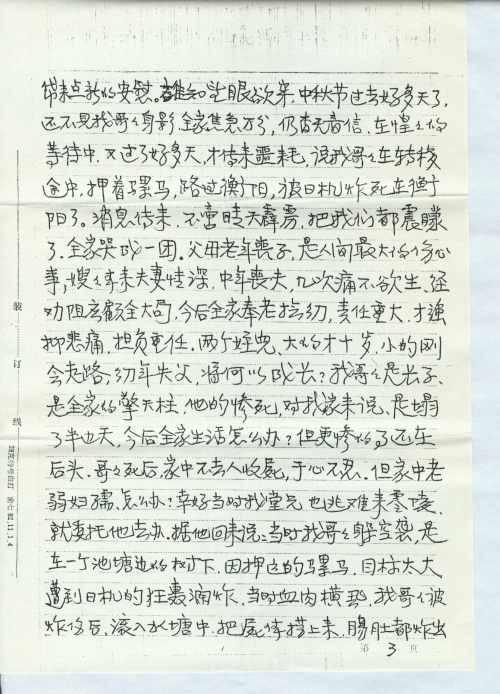 带来点新的安慰。谁知望眼欲穿,中秋节过去好多天了,
还不见我哥々身影全家焦急万分,仍杳无音信、在惶々的
等待中,又过了好多天,才传来噩耗,说我哥々在转移
途中,押着骡马,路过衡阳,被日机炸死在衡
阳了。消息传来,不啻晴天霹雳,把我们都震朦
了.全家哭成一团.父母老年丧子,是人间最大的伤心
事,嫂々素来夫妻情深,中年丧夫,几次痛不欲生,经
劝阻应顾全大局,今后全家奉老抚幼,责任重大,才强
抑悲痛,担负重任.两个侄儿、大的才十岁,小的刚
会走路,幼年失父,将何以成长?我哥々是长子、
是全家的擎天柱,他的惨死,对我家来说、是塌
了半边天,今后全家生活怎么办?但更惨的了还在
后头.哥々死后,家中不去人收屍,于心不忍.但家中老
弱妇孺,怎么办?幸好当时我堂兄也逃难来零陵
就委托他去办.据他回来说:当时我哥々躲空袭,是
在一个池塘边的树下,因押送的骡马,目标太大
遭到日机的狂轰滥炸,当时血肉横飞,我哥々被
炸伤后,滚入水塘中,把尸体捞上来,肠肚都炸出
第 3 页
装 订 线
92.11.1.4